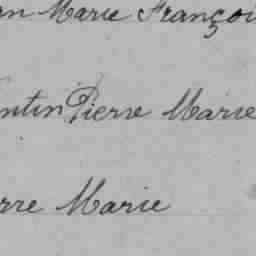 an Marie Françoi
entin Pierre Marie
rre Marie